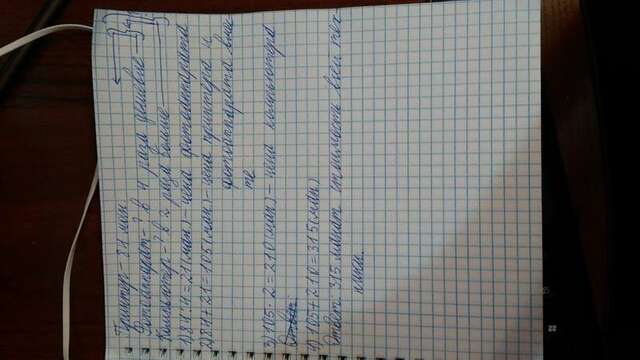 Принтер - 84 ман.
Фотоаппарат - ? в 4 раза дешевле
Компьютер - ? в 2 раза больше
1) 84:4=21(ман) - цена фотоаппарата
2) 84+21=105(ман) - цена принтера и
фотоаппарата вмес-
те
3) 105·2=210(ман) - цена компьютера
Ответ:
4) 105+210=315(ман)
Ответ: 315 манат стоимость всей тех-
ники.